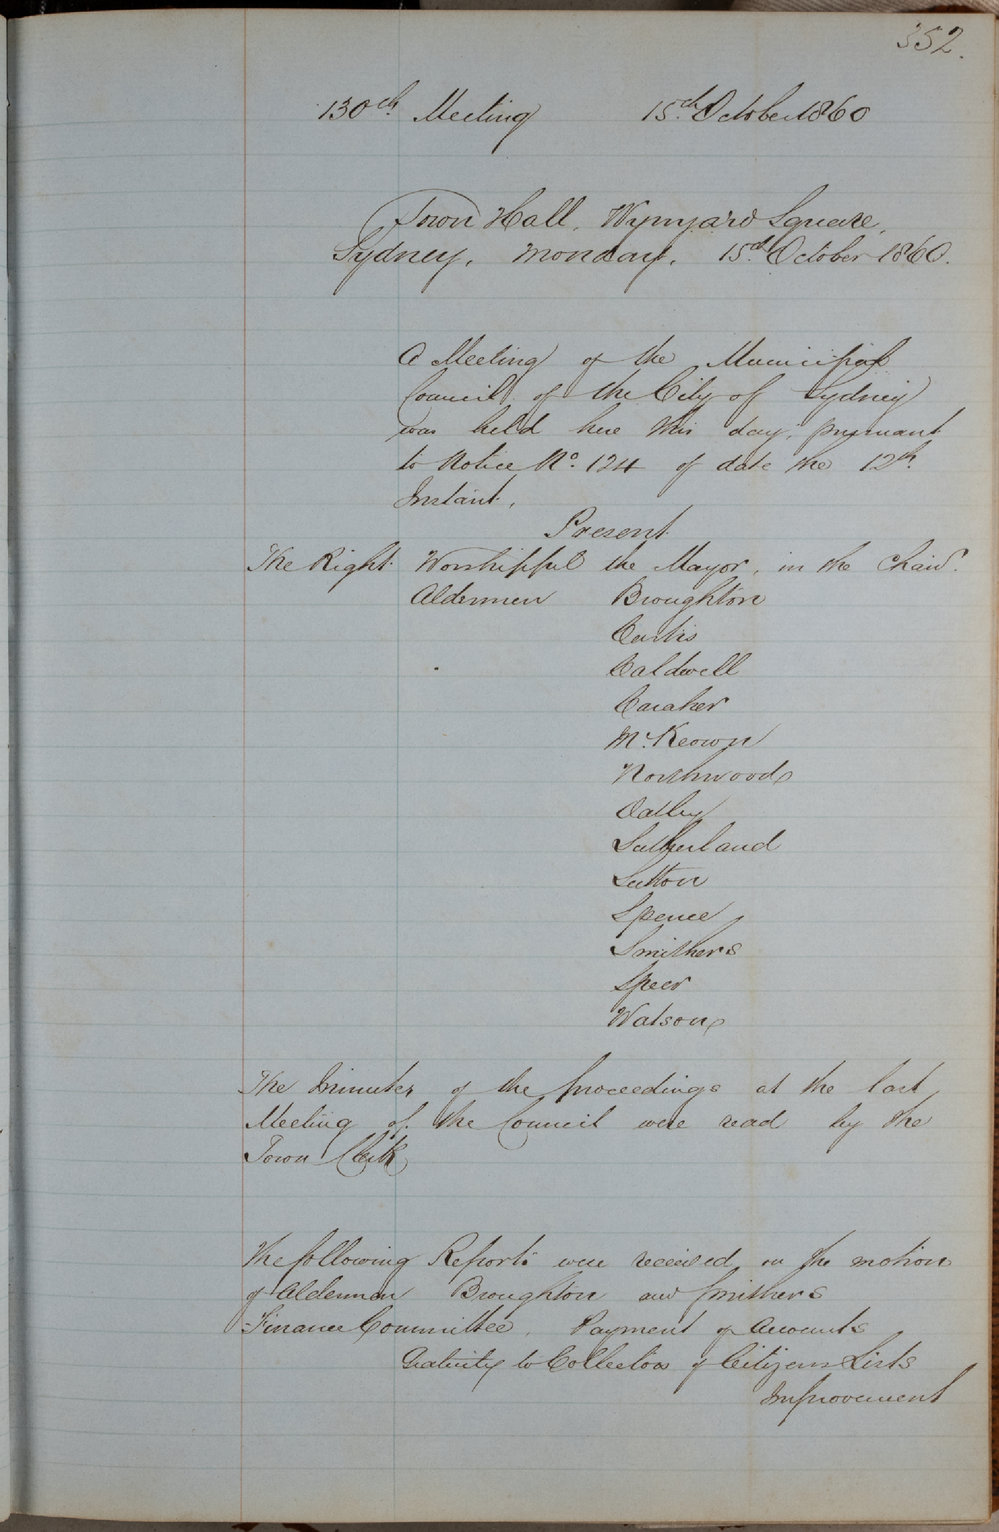 352.
130th Meeting 15th October 1860
Town Hall, Wynyard Square,
Sydney, Monday, 15th October 1860.
A Meeting of the Municipal
Council of the City of Sydney
was held here this day, pursuant
to Notice No. 124 of date the 12th
Instant.
Present
The Right Worshipful the Mayor, in the Chair.
Aldermen Broughton
Curtis
Caldwell
Caraher
McKeown
Northwood
Oatley
Sutherland
Sutton
Spence
Smithers
Speer
Watson
The Minutes of the proceedings at the last
Meeting of the Council were read by the
Town Clerk
The following Reports were received on the motion
of Aldermen Broughton and Smithers
Finance Committee. Payment of Accounts
Gratuity to Collectors of Citizens Lists
Improvement